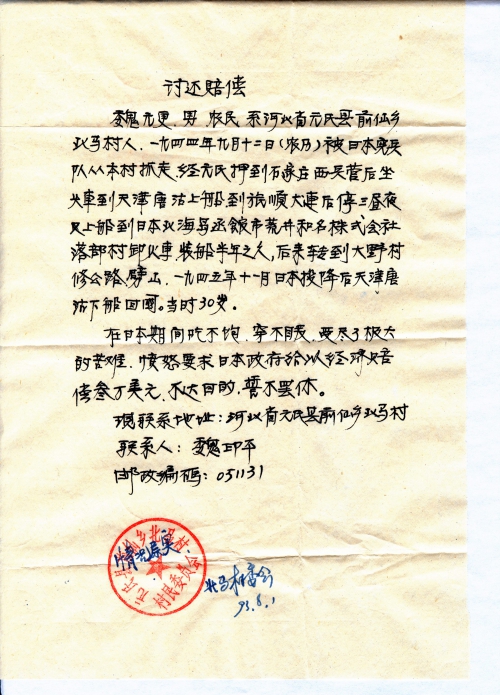 讨还赔偿
魏元更，男，农民，系河北省元氏县前仙乡
北马村人，一九四四年九月十二日（农历）被日本宪兵
队从本村抓走，经元氏押到石家庄西兵营后坐
火車到天津唐沽上船到旅順大連后停三昼夜
又上船到日本北海岛函館市荒井和名株式会社
落部村卸火車，装船半年之久，后来转到大野村
修公路，劈山，一九四五年十一月日本投降后天津唐
沽下船回國。当时30岁。
在日本期间吃不饱，穿不暖，受尽了极大
的苦难，愤怒要求日本政府给以经济赔
偿叁万美元，不达目的，誓不罢休。
现联系地址：河北省元氏县前仙乡北马村
联系人：魏印平
邮政编码：051131
情况属实
元氏县前仙乡北马村
村民委员会
北马村委会
93.8.1